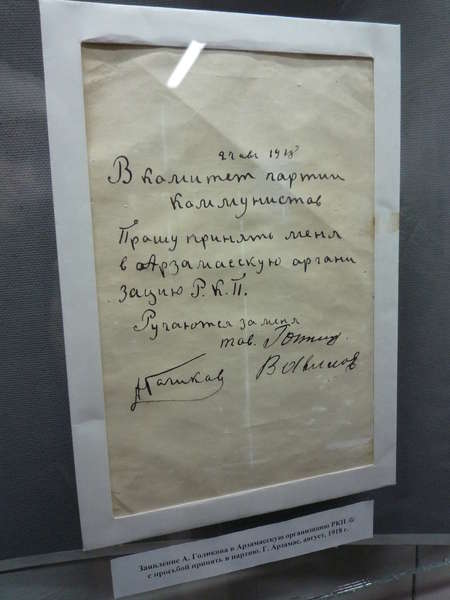 авг 1918
В комитет партии
Коммунистов
Прошу принять меня
в Арзамасскую органи
зацию Р.К.П.
Ручаются за меня
тов.
Вавилов
АГоликов
Заявление А. Голикова в Арзамасскую организацию РКП /б/
с просьбой принять в партию. Г. Арзамас, август, 1918 г.